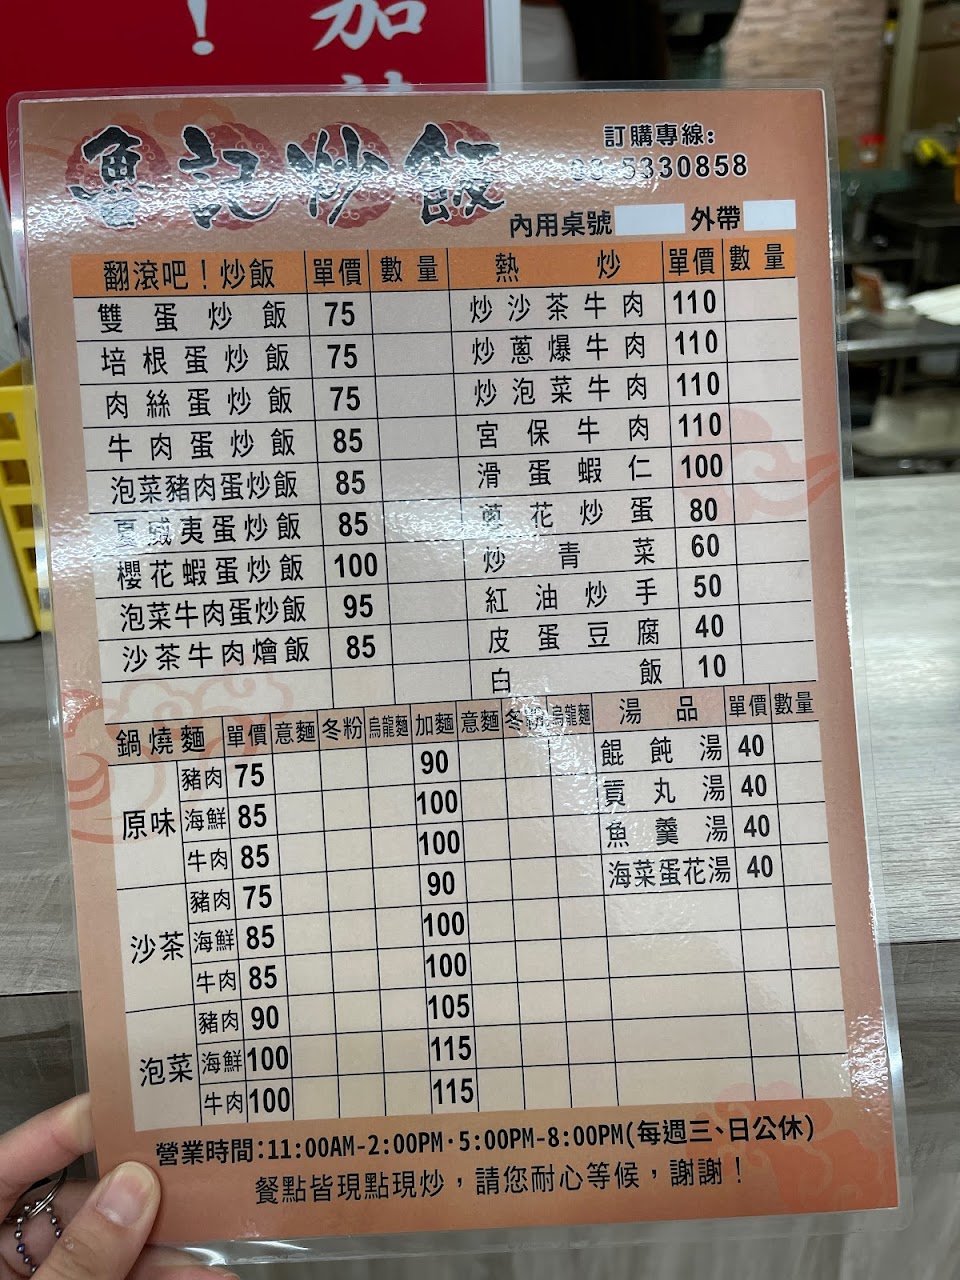 ！加
魯記炒飯
訂購專線:
5330858
內用桌號 外帶
翻滾吧！炒飯 單價 數量 熱炒 單價 數量
雙蛋炒飯 75 炒沙茶牛肉 110
培根蛋炒飯 75 炒蔥爆牛肉 110
肉絲蛋炒飯 75 炒泡菜牛肉 110
牛肉蛋炒飯 85 宮保牛肉 110
泡菜豬肉蛋炒飯 85 滑蛋蝦仁 100
夏威夷蛋炒飯 85 蔥花炒蛋 80
櫻花蝦蛋炒飯 100 炒青菜 60
泡菜牛肉蛋炒飯 95 紅油炒手 50
沙茶牛肉燴飯 85 皮蛋豆腐 40
白飯 10
鍋燒麵 單價 意麵 冬粉 烏龍麵 加麵 意麵 冬粉 烏龍麵 湯品 單價 數量
原味 豬肉 75 90 餛飩湯 40
海鮮 85 100 貢丸湯 40
牛肉 85 100 魚羹湯 40
沙茶 豬肉 75 90 海菜蛋花湯 40
海鮮 85 100
牛肉 85 100
泡菜 豬肉 90 105
海鮮 100 115
牛肉 100 115
營業時間:11:00AM-2:00PM·5:00PM-8:00PM(每週三、日公休)
餐點皆現點現炒，請您耐心等候，謝謝！